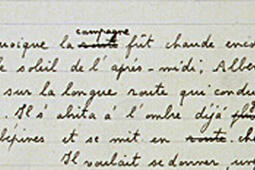 campagne
uoique la route fût chaude enco
le soleil de l'après-midi, Albe
sur la longue route qui condu
. Il s'abita à l'ombre déjà
bépines et se mit en route. che
Il voulait se donner, un